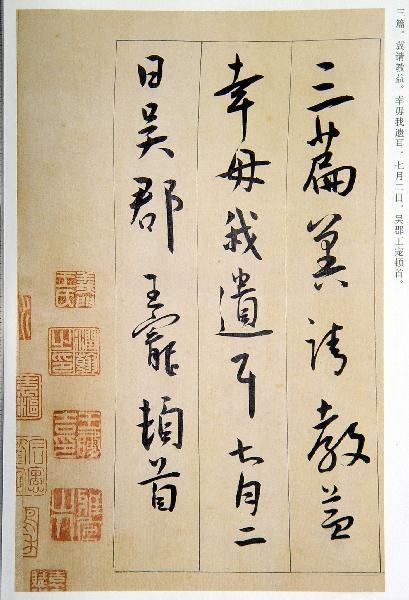 三篇，冀请教益。幸毋我遗耳。七月二日，吴郡王宠顿首。
三篇冀請教益
幸毋我遺耳七月二
日吳郡王寵頓首